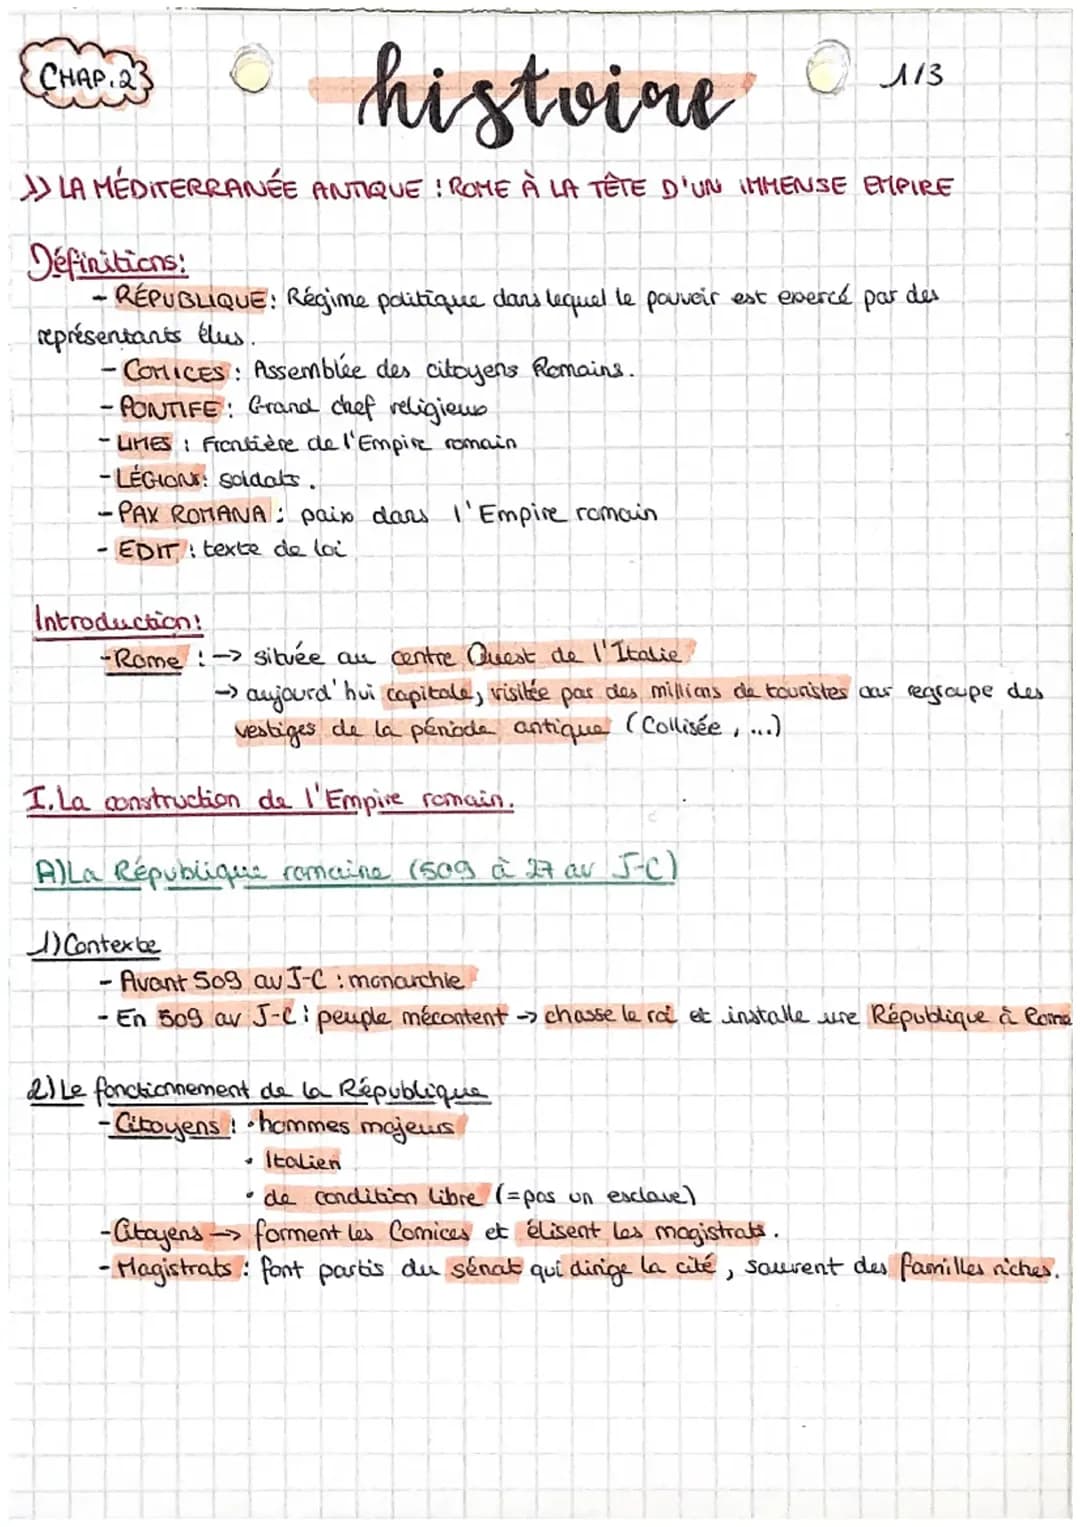 CHAP.2
histoire
1/3
LA MÉDITERRANÉE ANTIQUE : ROME À LA TÊTE D'UN IMMENSE EMPIRE
Définitions:
- RÉPUBLIQUE: Régime politique dans lequel le pouvoir est exercé par des
représentants élus.
- COMICES : Assemblée des citoyens Romains.
- PONTIFE : Grand chef religieux
- LIMES : Frontière de l'Empire romain
- LÉGIONS: soldats.
- PAX ROMANA : paix dans l'Empire romain
- EDIT : texte de loi
Introduction:
- Rome : → située au centre Ouest de l'Italie
→ aujourd'hui capitale, visitée par des millions de touristes car regroupe des
vestiges de la période antique (Collisée, ...)
I. La construction de l'Empire romain.
A) La République romaine (509 à 27 av J-C)
1) Contexte
- Avant 509 av J-C : monarchie
- En 509 av J-C : peuple mécontent → chasse le roi et installe une République à Rome
2) Le fonctionnement de la République
- Citoyens : • hommes majeurs
• Italien
• de condition libre (= pas un esclave)
- Citoyens → forment les Comices et élisent les magistrats.
- Magistrats : font partis du sénat qui dirige la cité, souvent des familles riches.